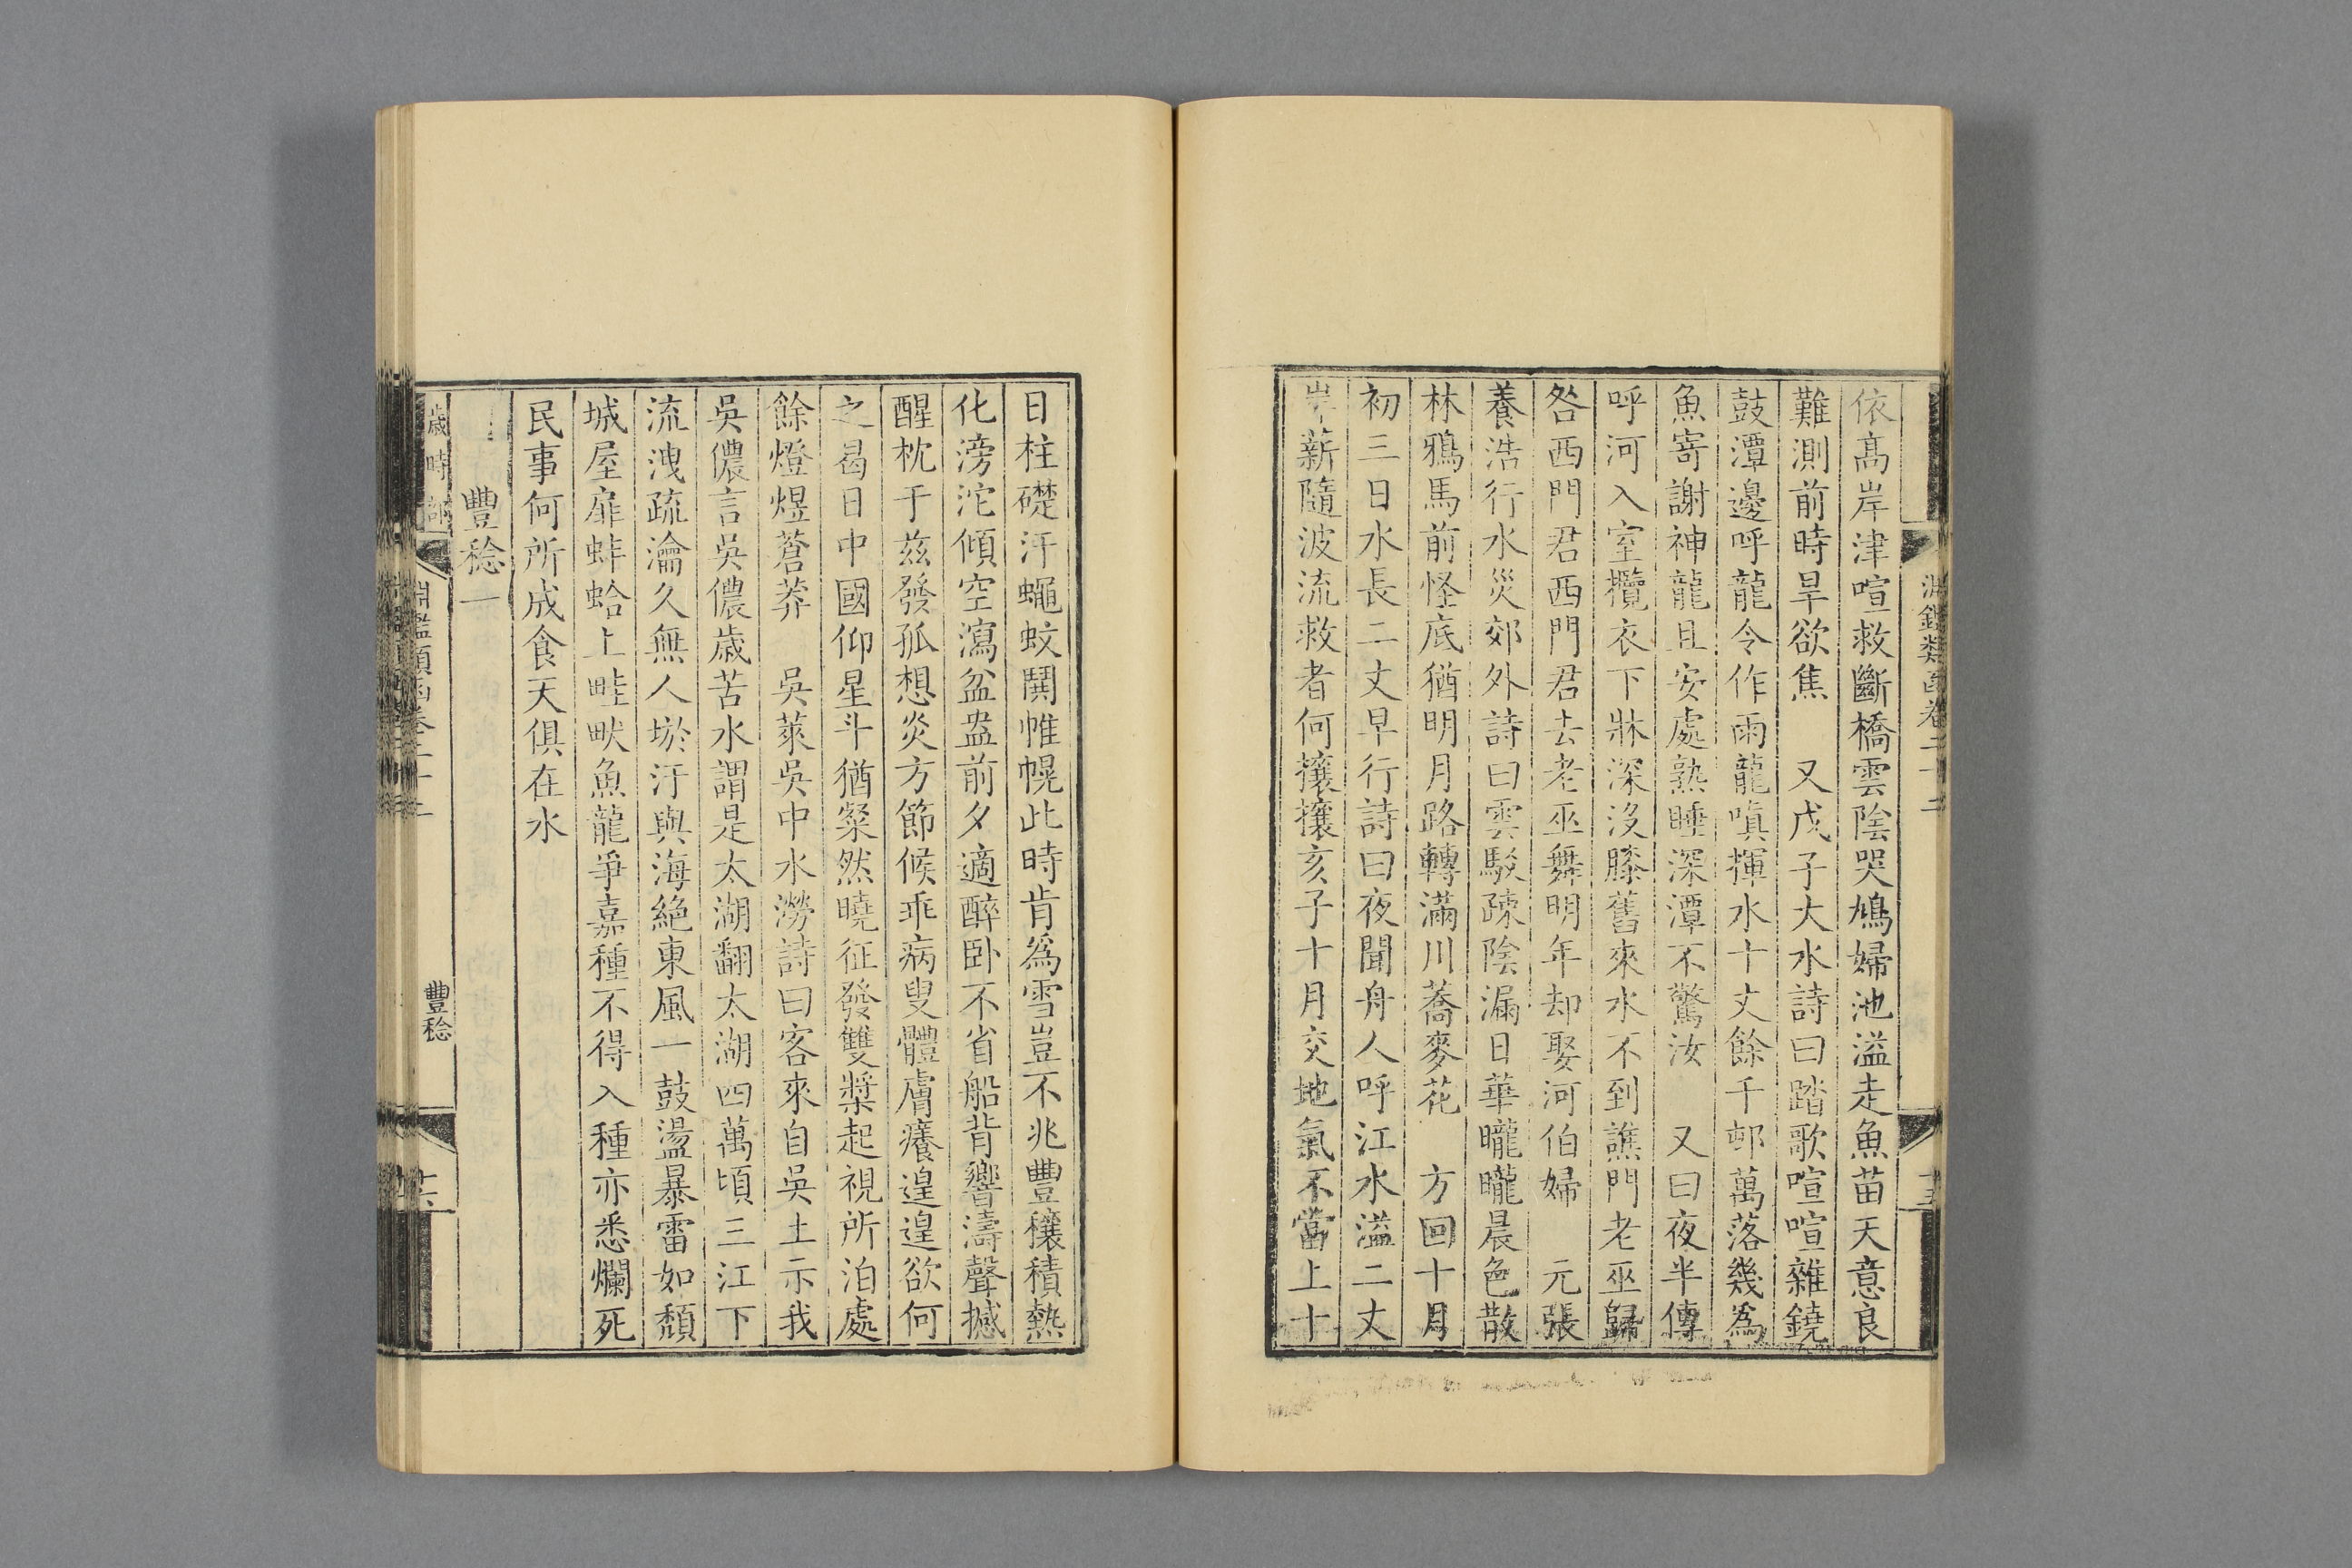 淵鑑類函卷二十二
十五
依高岸津喧救斷橋雲陰哭鳩婦池溢走魚苗天意良
難測前時旱欲焦　又戊子大水詩曰踏歌喧喧雜鐃
鼓潭邊呼龍令作雨龍嗔揮水十丈餘千邨萬落幾爲
魚寄謝神龍且安處熟睡深潭不驚汝　又曰夜半傳
呼河入室攬衣下牀深沒膝舊來水不到譙門老巫歸
咎西門君西門君去老巫舞明年却娶河伯婦　元張
養浩行水災郊外詩曰雲駁疎陰漏日華曨曨晨色散
林鴉馬前怪底猶明月路轉滿川蕎麥花　方回十月
初三日水長二丈早行詩曰夜聞舟人呼江水溢二丈
岸薪隨波流救者何攘攘亥子十月交地氣不當上十
日柱礎汗蠅蚊鬨帷幌此時肯爲雪豈不兆豐穰積熱
化滂沱傾空瀉盆盎前夕適醉卧不省船背響濤聲撼
醒枕于茲發孤想炎方節候乖病叟體膚癢遑遑欲何
之曷日中國仰星斗猶粲然曉征發雙槳起視所泊處
餘燈煜蒼莽　吳萊吳中水澇詩曰客來自吳土示我
吳儂言吳儂歲苦水謂是太湖翻太湖四萬頃三江下
流洩疏瀹久無人淤汙與海絕東風一鼓盪暴雷如頹
城屋扉蚌蛤上畦畎魚龍爭嘉種不得入種亦悉爛死
民事何所成食天俱在水
豐稔一
歲時部
淵鑑類函卷二十二
豐稔
十六